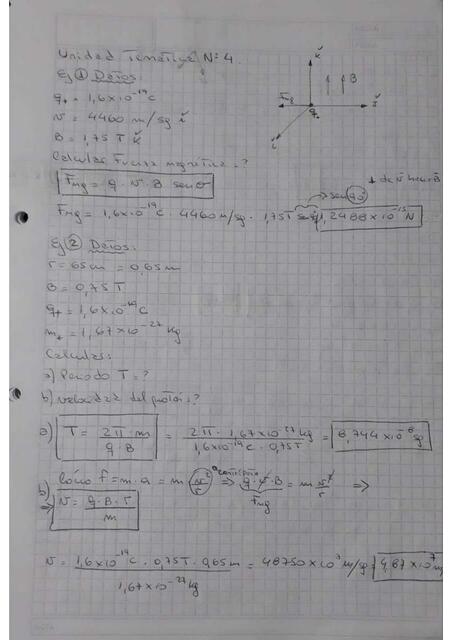 Unidad Temática Nº 4.
Ej ① Datos:
q₊ = 1,6x10⁻¹⁹ C
v = 4460 m/sg ǐ
B = 1,75 T ǩ
Calcular Fuerza magnética = ?
Fmg = q · v · B senθ
k
B
Fmg
q₊
i
→ sen 90°
Fmg = 1,6x10⁻¹⁹ C · 4460 m/sg · 1,75T senθ = 1,2488 x 10⁻¹⁵ N
Ej ② Datos:
r = 65 cm = 0,65 m
B = 0,75 T
q₊ = 1,6x10⁻¹⁹ C
m₊ = 1,67x10⁻²⁷ Kg
Calcular:
a) Periodo T = ?
b) velocidad del protón?
a) T = 2π · m / q · B = 2π · 1,67x10⁻²⁷ kg / 1,6x10⁻¹⁹ C · 0,75T = 8,744 x10⁻⁸ sg
b) f = m · a = m v²/r ⇒ q · v · B = m v²/r ⇒
Fmg
⇒ v = q · B · r / m
v = 1,6x10⁻¹⁹ C · 0,75T · 0,65m / 1,67x10⁻²⁷ kg = 48750 x10³ m/sg = 4,87 x10⁷ m